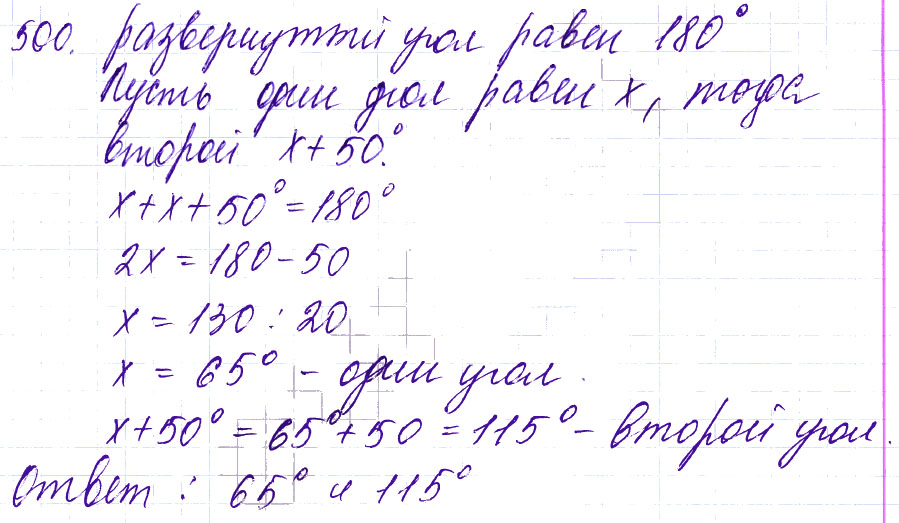 500. развернутый угол равен 180°
Пусть один угол равен х, тогда
второй х+50°.
х+х+50°=180°
2х=180-50
х=130:20
х=65° - один угол.
х+50°=65°+50=115°- второй угол.
Ответ: 65° и 115°